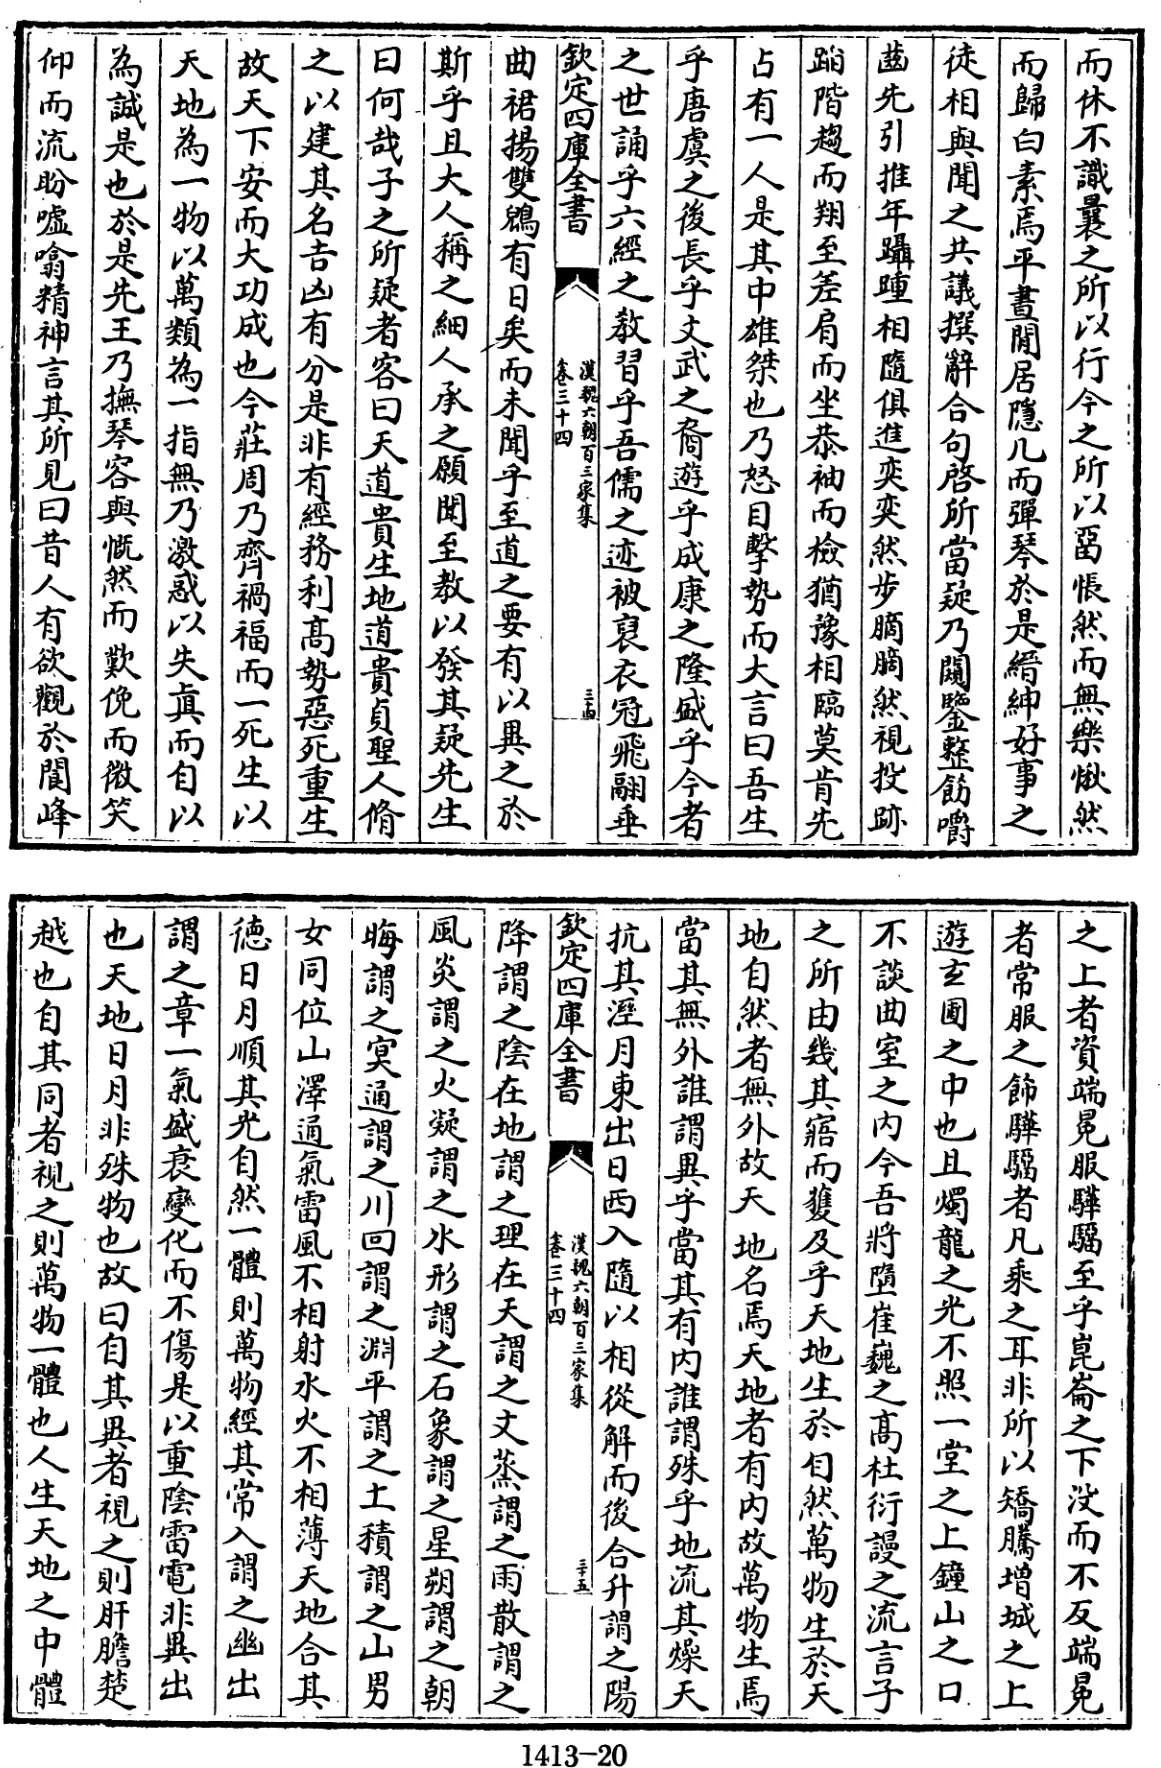 而休不識曩之所以行今之所以㽞悵然而無樂愀然
而歸白素焉平晝閒居隱几而彈琴於是縉紳好事之
徒相與聞之共議撰辭合句啓所當疑乃闚鑒整飭嚼
齒先引推年躡踵相隨俱進奕奕然步䐚䐚然視投跡
蹈階趨而翔至差肩而坐恭袖而檢猶豫相臨莫肯先
占有一人是其中雄桀也乃怒目擊勢而大言曰吾生
乎唐虞之後長乎文武之裔遊乎成康之隆盛乎今者
之世誦乎六經之教習乎吾儒之迹被裒衣冠飛翮垂
欽定四庫全書
漢魏六朝百三家集
卷三十四
三十四
曲裙揚雙鶂有日矣而未聞乎至道之要有以異之於
斯乎且大人稱之細人承之願聞至教以發其疑先生
曰何哉子之所疑者客曰天道貴生地道貴貞聖人脩
之以建其名吉凶有分是非有經務利高勢惡死重生
故天下安而大功成也今莊周乃齊禍福而一死生以
天地為一物以萬類為一指無乃激惑以失真而自以
為誠是也於是先王乃撫琴容與慨然而歎俛而微笑
仰而流盼噓噏精神言其所見曰昔人有欲觀於閬峰
之上者資端冕服驊騮至乎崑崙之下沒而不反端冕
者常服之飾驊騮者凡乘之耳非所以矯騰增城之上
遊玄圃之中也且燭龍之光不照一堂之上鐘山之口
不談曲室之內今吾將墮崔巍之高杜衍謾之流言子
之所由幾其寤而獲及乎天地生於自然萬物生於天
地自然者無外故天地名焉天地者有內故萬物生焉
當其無外誰謂異乎當其有內誰謂殊乎地流其燥天
抗其溼月東出日西入隨以相從解而後合升謂之陽
欽定四庫全書
漢魏六朝百三家集
卷三十四
三十五
降謂之陰在地謂之理在天謂之文蒸謂之雨散謂之
風炎謂之火凝謂之氷形謂之石象謂之星朔謂之朝
晦謂之冥通謂之川回謂之淵平謂之土積謂之山男
女同位山澤通氣雷風不相射水火不相薄天地合其
德日月順其光自然一體則萬物經其常入謂之幽出
謂之章一氣盛衰變化而不傷是以重陰雷電非異出
也天地日月非殊物也故曰自其異者視之則肝膽楚
越也自其同者視之則萬物一體也人生天地之中體
1413-20